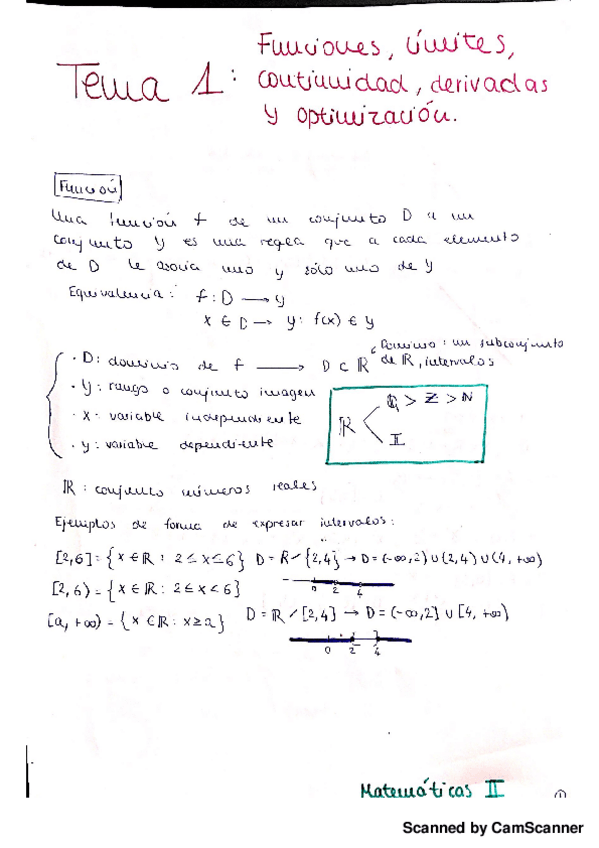 Tema 1: Funciones, límites,
continuidad, derivadas
y optimización.
Función
Una función f de un conjunto D a un
conjunto Y es una regla que a cada elemento
de D le asocia uno y sólo uno de Y
Equivalencia: f: D → Y
x ∈ D → y: f(x) ∈ Y
· D: dominio de f → D ⊂ ℝ
Dominio: un subconjunto
de ℝ, intervalos
· Y: rango o conjunto imagen
· x: variable independiente
· y: variable dependiente
ℝ < ℚ > ℤ > ℕ
𝕀
ℝ: conjunto números reales
Ejemplos de forma de expresar intervalos:
[2,6] = {x ∈ ℝ : 2 ≤ x ≤ 6} D = ℝ / {2,4} → D = (-∞,2) ∪ (2,4) ∪ (4, +∞)
0 2 4
[2,6) = {x ∈ ℝ : 2 ≤ x < 6}
[a, +∞) = {x ∈ ℝ : x ≥ a} D = ℝ / [2,4] → D = (-∞,2] ∪ [4, +∞)
0 2 4
Matemáticas II
①
Scanned by CamScanner